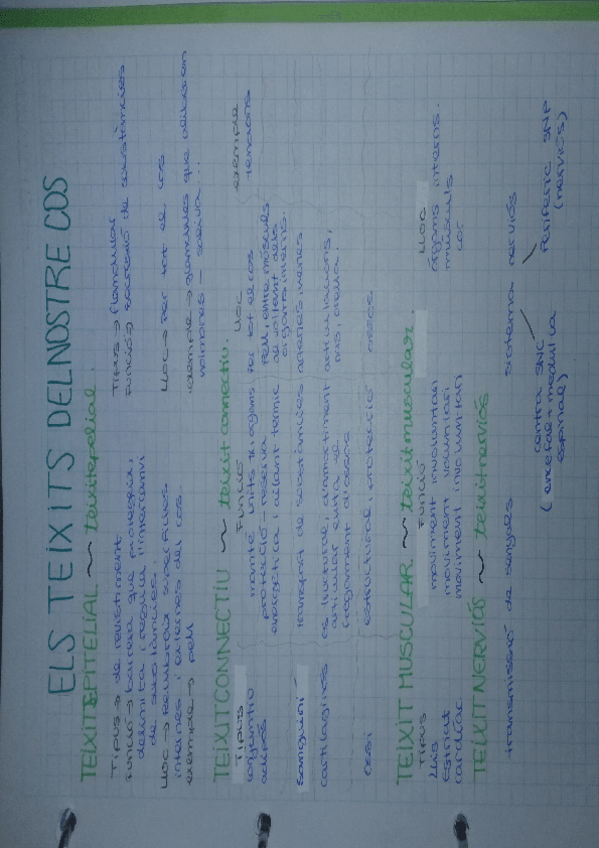 ELS TEIXITS DEL NOSTRE COS
TEIXIT EPITELIAL ~ teixit epitelial.
Tipus → de revestiment
Funció → barrera que protegeix,
delimita i regula l'intercanvi
de substàncies.
Lloc → Recobreix superfícies
internes i externes del cos.
exemple → pell
Tipus → glandular
Funció → secreció de substàncies
Lloc → Per tot el cos
exemple → glàndules que alliberen
hormones - saliva...
TEIXIT CONNECTIU ~ teixit connectiu.
Tipus Funció Lloc exemple
conjuntiu manté units els òrgans Per tot el cos tendons
adipós protecció - reserva energètica i aïllant tèrmic Pell, entre músculs, al voltant dels òrgans interns.
Sanguini transport de substàncies artèries, venes
cartilaginós estructural, amortiment articular evita el fregament d'ossos articulacions, nas, orella.
ossi estructural, protecció ossos
TEIXIT MUSCULAR ~ teixit muscular.
Tipus Funció Lloc
Llis moviment involuntari òrgans interns.
Estriat moviment voluntari músculs
cardíac moviment involuntari cor
TEIXIT NERVIÓS ~ teixit nerviós
transmissió de senyals sistema nerviós
central SNC
(encèfal + medul·la
espinal)
Perifèric SNP
(nervios)